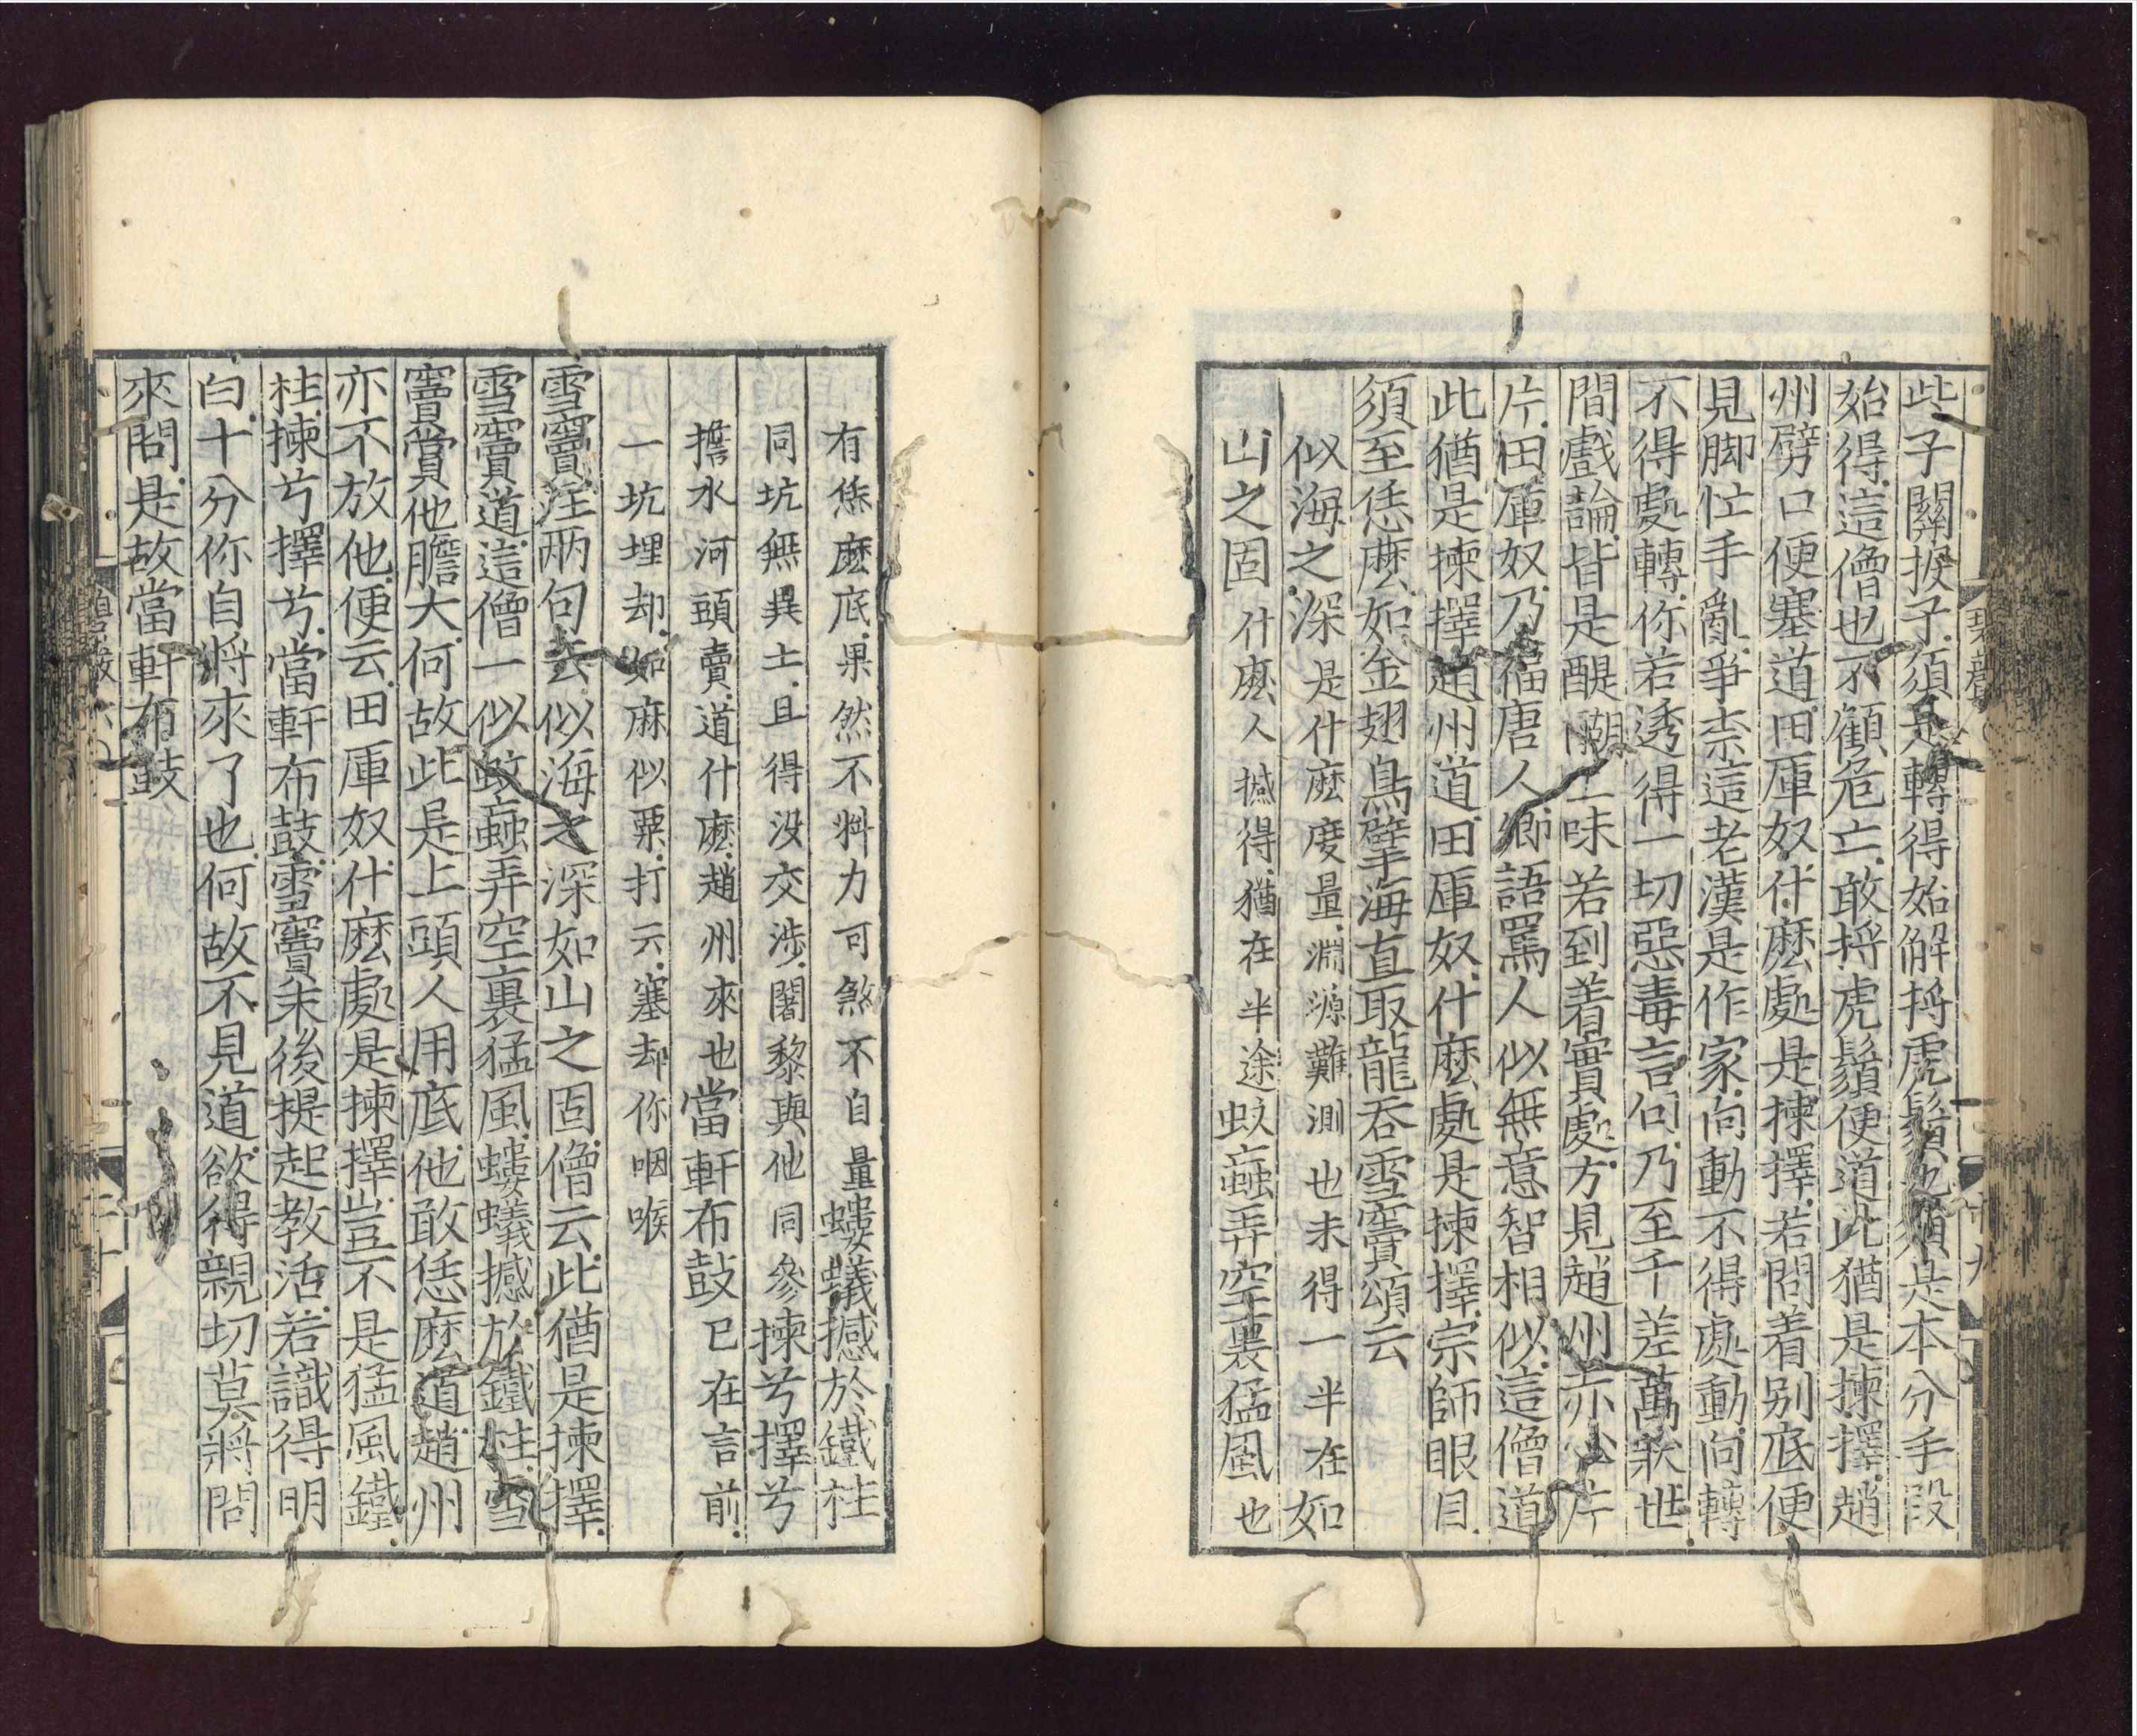 此子關捩子須是轉得始解捋虎鬚也須是本分手段
始得這僧也不顧危亡敢捋虎鬚便道此猶是揀擇趙
州劈口便塞道田厙奴什麼處是揀擇若問着別底便
見脚忙手亂爭柰這老漢是作家向動不得處動向轉
不得處轉你若透得一切惡毒言句乃至千差萬狀世
間戲論皆是醍醐上味若到着實處方見趙州赤心片
片田厙奴乃福唐人鄉語罵人似無意智相似這僧道
此猶是揀擇趙州道田厙奴什麼處是揀擇宗師眼目
須至恁麼如金翅鳥擘海直取龍吞雪竇頌云
似海之深是什麼度量淵源難測也未得一半在如
山之固什麼人撼得猶在半途蚊䖟弄空裏猛風也
有恁麼底果然不料力可煞不自量螻蟻撼於鐵柱
同坑無異土且得沒交涉闍黎與他同參揀兮擇兮
擔水河頭賣道什麼趙州來也當軒布鼓已在言前
一坑埋却如麻似粟打云塞却你咽喉
雪竇注兩句去似海之深如山之固僧云此猶是揀擇
雪竇道這僧一似蚊䖟弄空裏猛風螻蟻撼於鐵柱雪
竇賞他膽大何故此是上頭人用底他敢恁麼道趙州
亦不放他便云田厙奴什麼處是揀擇豈不是猛風鐵
柱揀兮擇兮當軒布鼓雪竇末後提起教活若識得明
白十分你自將來了也何故不見道欲得親切莫將問
來問是故當軒布鼓